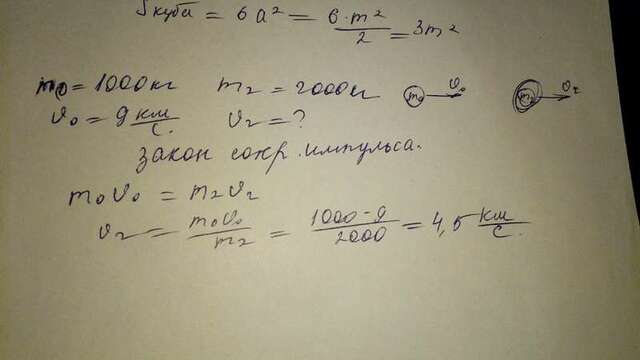 Sкуба = 6a² = 6·m²/2 = 3m²
m₀ = 1000кг m₂ = 2000кг m₀ v₀ m₂ v₂
v₀ = 9 км/с. v₂ = ?
закон сохр. импульса.
m₀v₀ = m₂v₂
v₂ = m₀v₀/m₂ = 1000·9/2000 = 4,5 км/с.